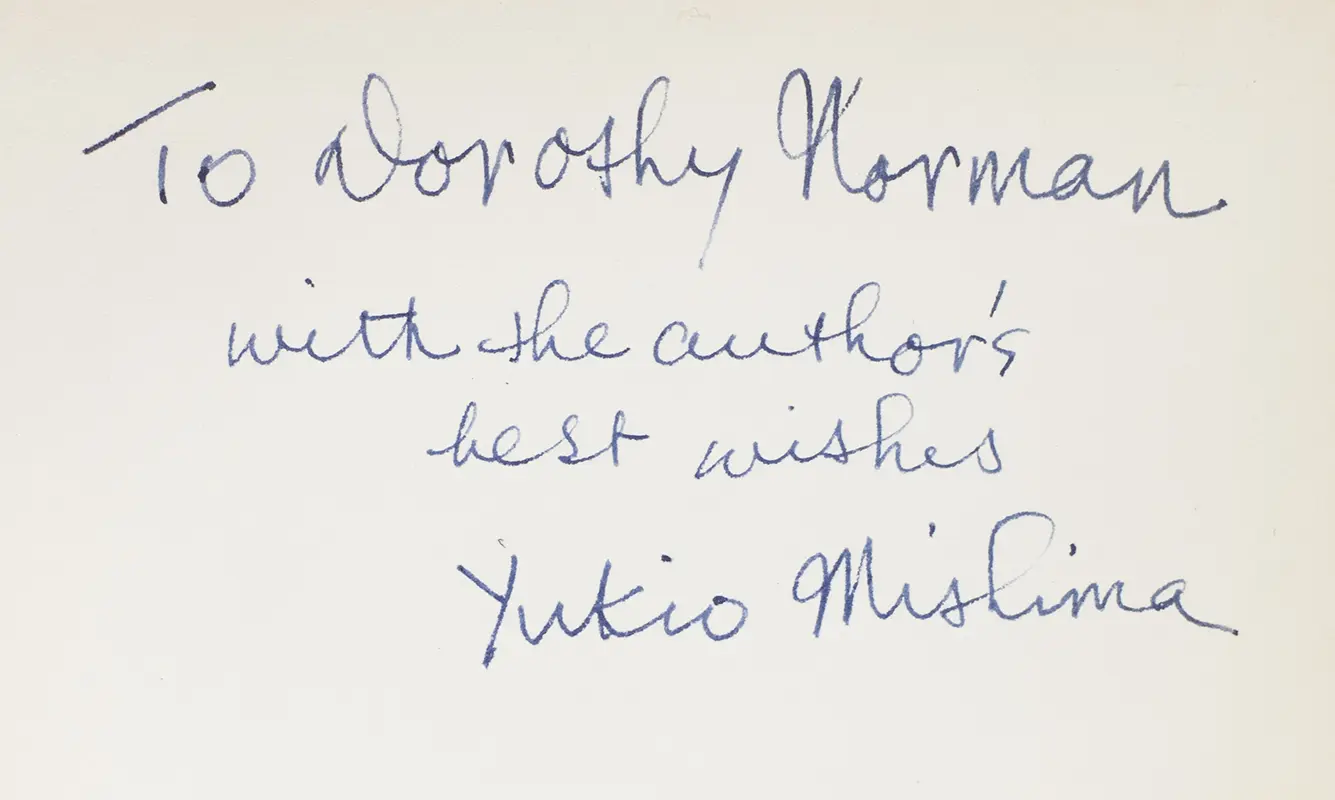 To Dorothy Norman
with the author's
best wishes
Yukio Mishima